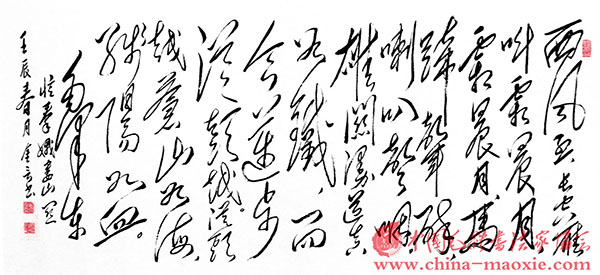 西风烈長空雁
叫霜晨月
霜晨月馬
蹄聲碎
喇叭聲咽
雄關漫道真
如鐵而
今邁步
從頭越從頭
越蒼山如海
殘陽如血
毛澤東
憶秦娥婁山關
壬辰春月
中国毛体书法家协会
www.china-maoxie.com